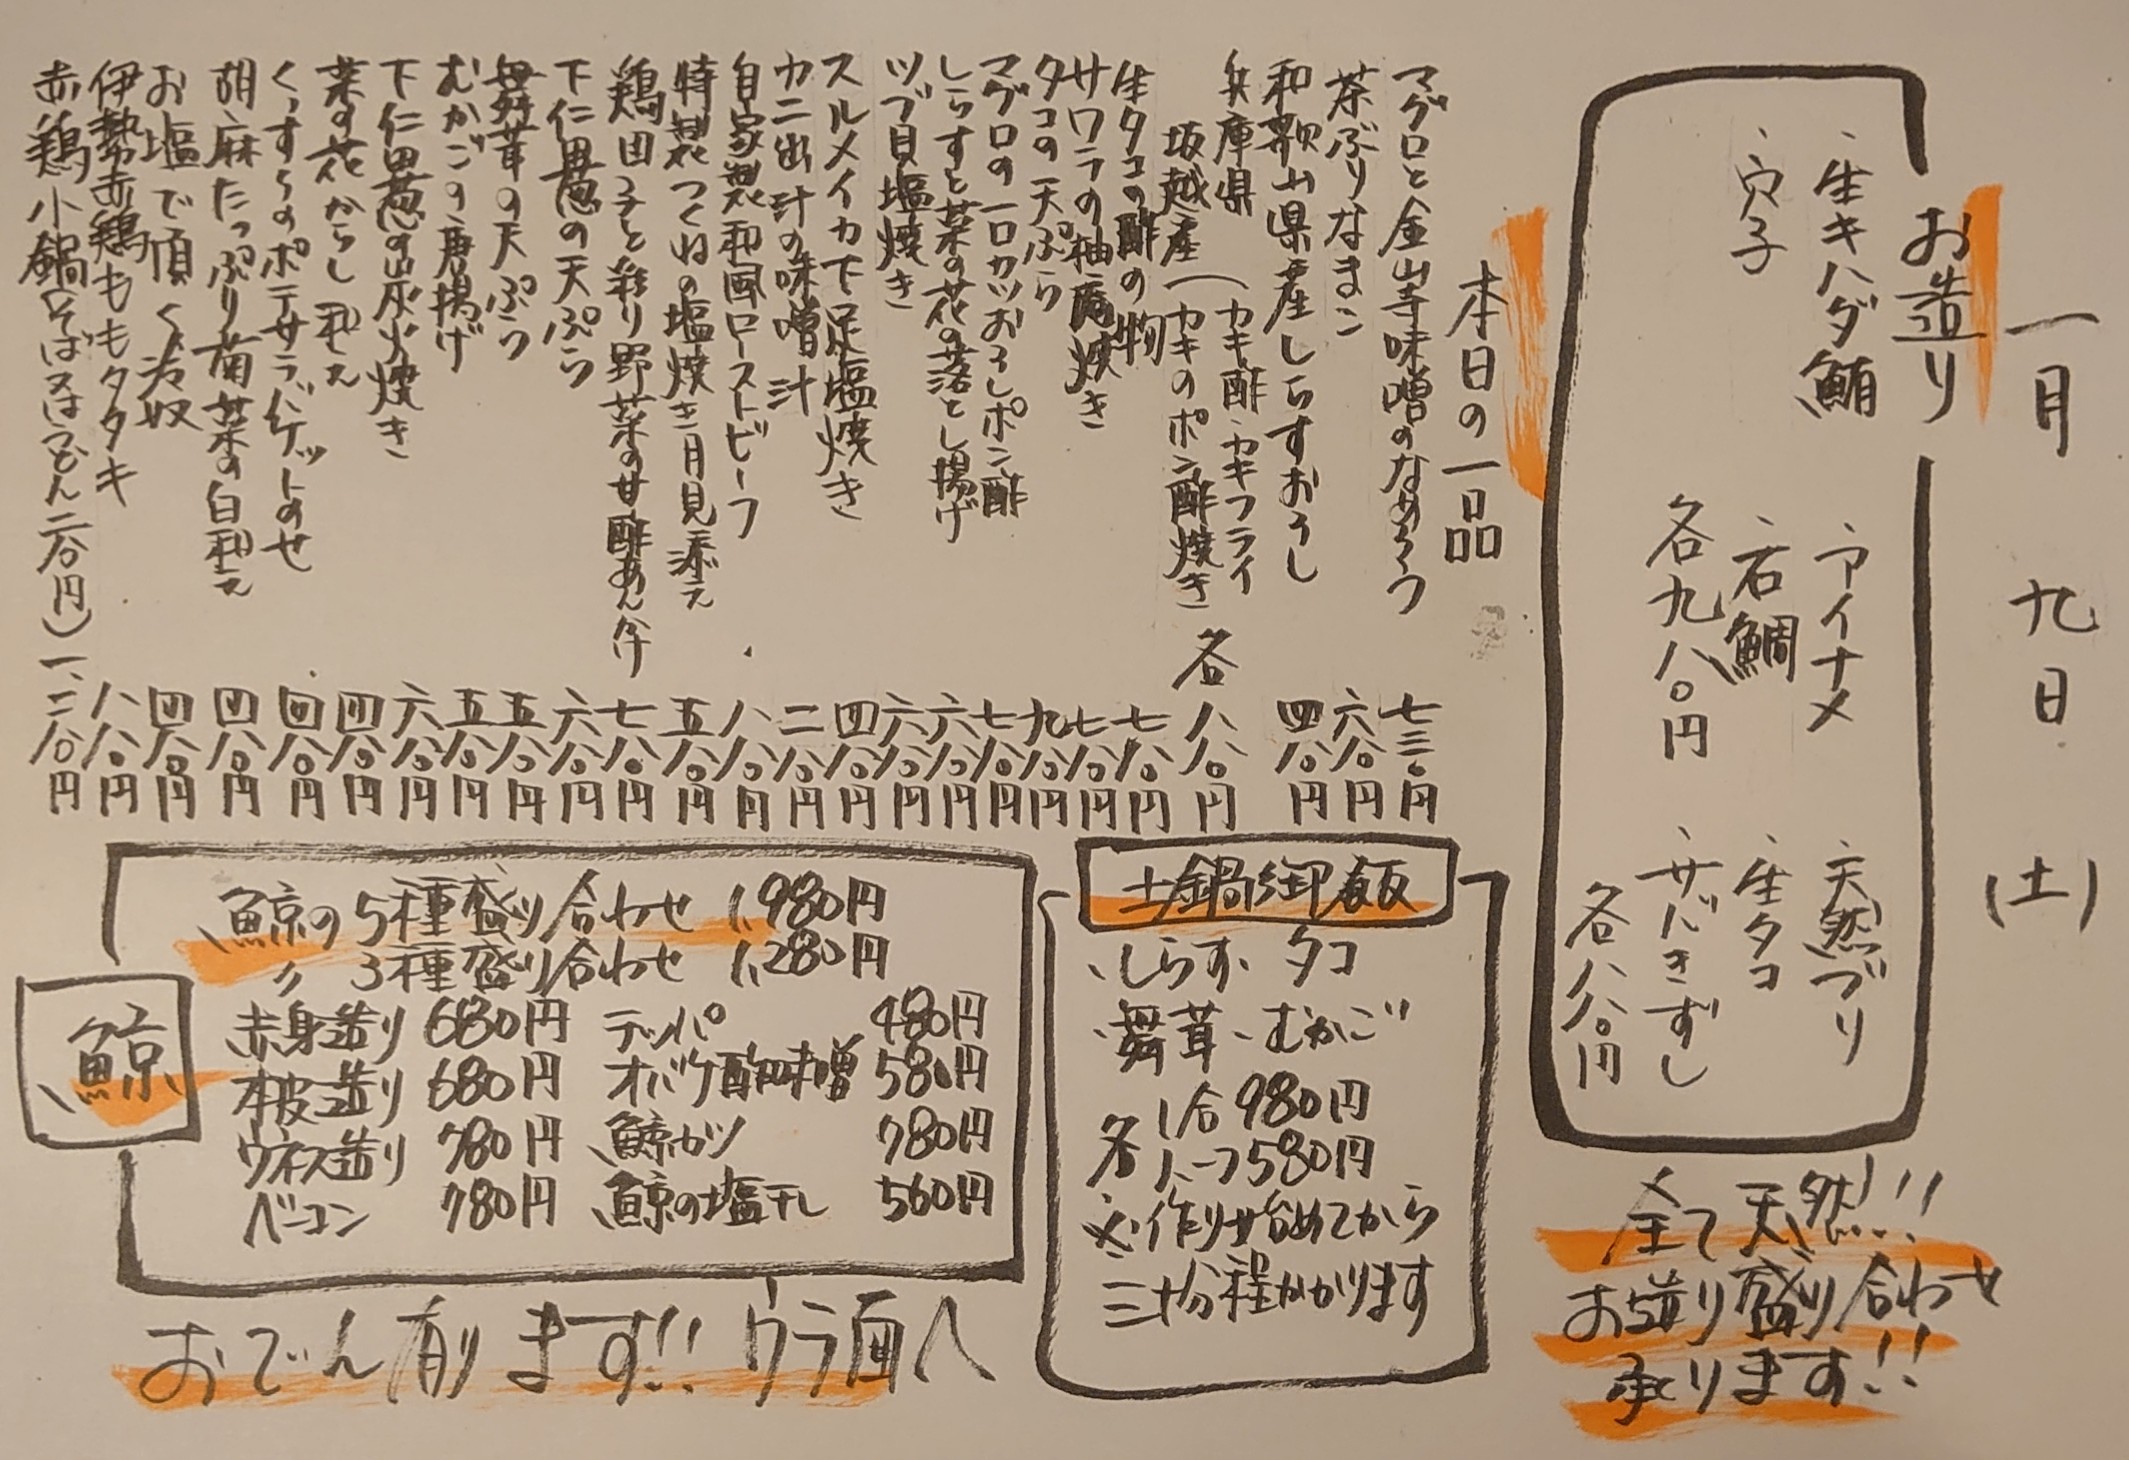 一月 九日 (土)
お造り
、生キハダ鮪 、アイナメ 、天然ブリ
、穴子 、石鯛 、生タコ
各九八〇円 、サバきずし
各八八〇円
全て天然!!
お造り盛り合わせ
承ります!!
本日の一品
マグロと金山寺味噌のなめろう 七三〇円
茶ぶりなまこ 六八〇円
和歌山県産しらすおろし 四八〇円
兵庫県 (カキ酢・カキフライ
坂越産 (カキのポン酢焼き 各八八〇円
生タコの酢の物 七八〇円
サワラの柚庵焼き 七八〇円
タコの天ぷら 九八〇円
マグロの一口カツおろしポン酢 七八〇円
しらすと菜の花の落とし揚げ 六八〇円
ツブ貝塩焼き 六八〇円
スルメイカ下足塩焼き 四八〇円
カニ出汁の味噌汁 二八〇円
自家製和風ローストビーフ 八八〇円
特製つくねの塩焼き月見添え 五八〇円
鶏団子と彩り野菜の甘酢あんかけ 七八〇円
下仁田葱の天ぷら 六八〇円
舞茸の天ぷら 五八〇円
むかごの唐揚げ 五八〇円
下仁田葱の炭火焼き 六八〇円
菜の花からし和え 四八〇円
くっすらのポテサラバゲットのせ 四八〇円
胡麻たっぷり菊菜の白和え 四八〇円
お塩で頂く寄奴 四八〇円
伊勢赤鶏ももタタキ 八八〇円
赤鶏小鍋(そば又はうどん二八〇円) 一、二八〇円
土鍋御飯
、しらす、タコ
、舞茸、むかご
各 1合980円
ハーフ580円
※作り始めてから
三十分程かかります
鯨
鯨の5種盛り合わせ 1,980円
〃 3種盛り合わせ 1,280円
赤身造り 680円 テッパ 480円
本皮造り 680円 オバケ酢味噌 580円
ウネス造り 780円 鯨カツ 780円
ベーコン 780円 鯨の塩干し 560円
おでん有ります!! ウラ面へ